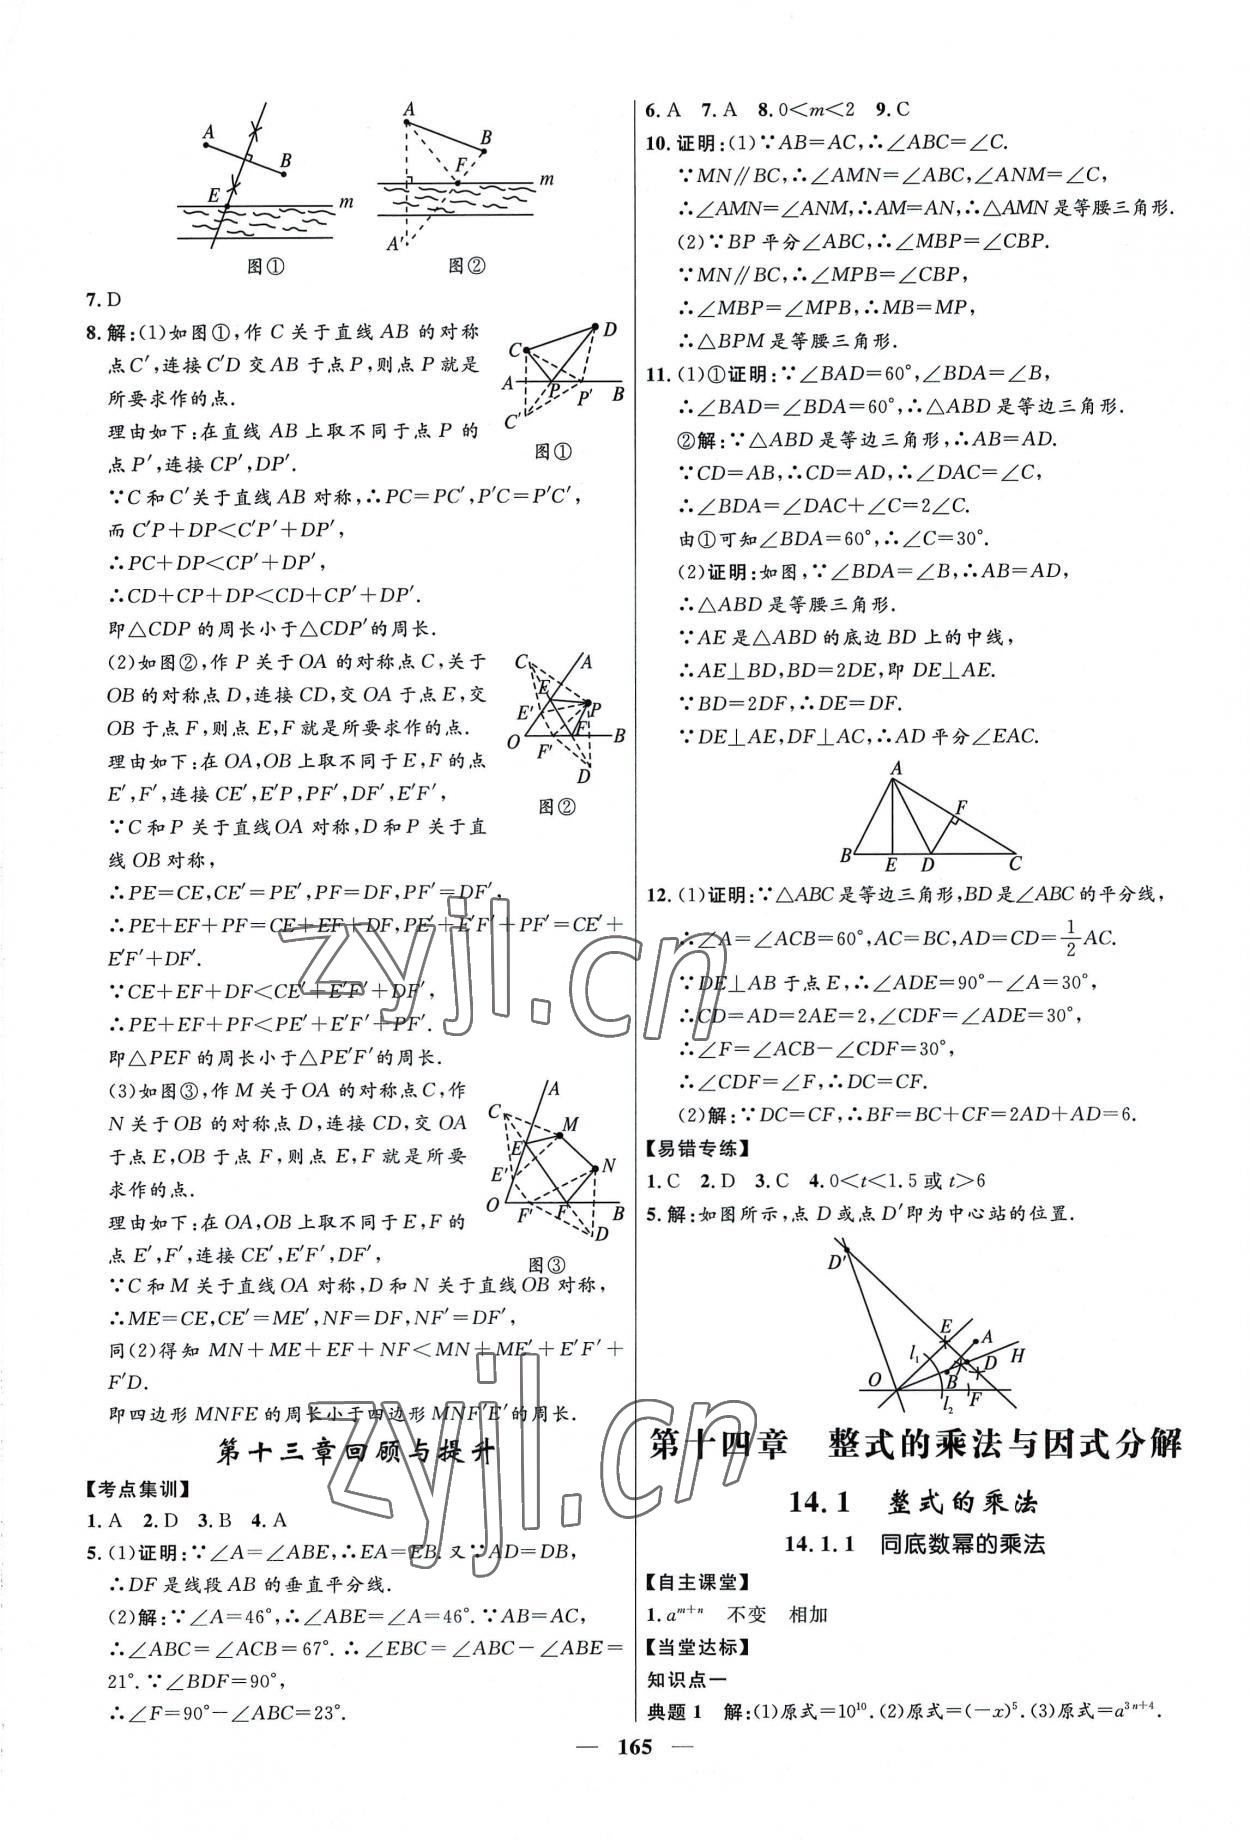 A
B
E
m
图①
A
B
F
m
A′
图②
7. D
8. 解:(1)如图①,作 C 关于直线 AB 的对称
点C′,连接 C′D 交AB 于点P,则点 P 就是
所要求作的点.
理由如下:在直线 AB 上取不同于点 P 的
点 P′,连接 CP′,DP′.
D
C
A
P
P′
B
C′
图①
∵C 和 C′关于直线 AB 对称,∴PC=PC′,P′C=P′C′,
而 C′P+DP<C′P′+DP′,
∴PC+DP<CP′+DP′,
∴CD+CP+DP<CD+CP′+DP′.
即△CDP 的周长小于△CDP′的周长.
(2)如图②,作 P 关于OA 的对称点 C,关于
OB 的对称点 D,连接 CD,交 OA 于点 E,交
OB 于点 F,则点 E,F 就是所要求作的点.
理由如下:在 OA,OB 上取不同于 E,F 的点
E′,F′,连接 CE′,E′P,PF′,DF′,E′F′,
∵C 和 P 关于直线OA 对称,D 和 P 关于直
线 OB 对称,
C
A
E
P
E′
O
F′
F
B
D
图②
∴PE=CE,CE′=PE′,PF=DF,PF′=DF′.
∴PE+EF+PF=CE+EF+DF,PE′+E′F′+PF′=CE′+
E′F′+DF′.
∵CE+EF+DF<CE′+E′F′+DF′,
∴PE+EF+PF<PE′+E′F′+PF′.
即△PEF 的周长小于△PE′F′的周长.
(3)如图③,作 M 关于OA 的对称点C,作
N 关于 OB 的对称点 D,连接 CD,交 OA
于点 E,OB 于点 F,则点 E,F 就是所要
求作的点.
理由如下:在 OA,OB 上取不同于 E,F 的
点 E′,F′,连接 CE′,E′F′,DF′,
A
C
M
E
N
E′
O
F′
F
B
D
图③
∵C 和 M 关于直线OA 对称,D 和 N 关于直线 OB 对称,
∴ME=CE,CE′=ME′,NF=DF,NF′=DF′,
同(2)得知 MN+ME+EF+NF<MN+ME′+E′F′+
F′D.
即四边形 MNFE 的周长小于四边形 MNF′E′的周长.
第十三章回顾与提升
【考点集训】
1. A 2. D 3. B 4. A
5. (1)证明:∵∠A=∠ABE,∴EA=EB. 又∵AD=DB,
∴DF 是线段 AB 的垂直平分线.
(2)解:∵∠A=46°,∴∠ABE=∠A=46°. ∵AB=AC,
∴∠ABC=∠ACB=67°. ∴∠EBC=∠ABC−∠ABE=
21°. ∵∠BDF=90°,
∴∠F=90°−∠ABC=23°.
6. A 7. A 8. 0<m<2 9. C
10. 证明:(1)∵AB=AC,∴∠ABC=∠C.
∵MN∥BC,∴∠AMN=∠ABC,∠ANM=∠C,
∴∠AMN=∠ANM,∴AM=AN,∴△AMN 是等腰三角形.
(2)∵BP 平分∠ABC,∴∠MBP=∠CBP.
∵MN∥BC,∴∠MPB=∠CBP,
∴∠MBP=∠MPB,∴MB=MP,
∴△BPM 是等腰三角形.
11. (1)①证明:∵∠BAD=60°,∠BDA=∠B,
∴∠BAD=∠BDA=60°,∴△ABD 是等边三角形.
②解:∵△ABD 是等边三角形,∴AB=AD.
∵CD=AB,∴CD=AD,∴∠DAC=∠C,
∴∠BDA=∠DAC+∠C=2∠C.
由①可知∠BDA=60°,∴∠C=30°.
(2)证明:如图,∵∠BDA=∠B,∴AB=AD,
∴△ABD 是等腰三角形.
∵AE 是△ABD 的底边 BD 上的中线,
∴AE⊥BD,BD=2DE,即 DE⊥AE.
∵BD=2DF,∴DE=DF.
∵DE⊥AE,DF⊥AC,∴AD 平分∠EAC.
A
F
B
E
D
C
12. (1)证明:∵△ABC 是等边三角形,BD 是∠ABC 的平分线,
∴∠A=∠ACB=60°,AC=BC,AD=CD=1/2 AC.
∵DE⊥AB 于点 E,∴∠ADE=90°−∠A=30°,
∴CD=AD=2AE=2,∠CDF=∠ADE=30°,
∴∠F=∠ACB−∠CDF=30°,
∴∠CDF=∠F,∴DC=CF.
(2)解:∵DC=CF,∴BF=BC+CF=2AD+AD=6.
【易错专练】
1. C 2. D 3. C 4. 0<t<1.5 或 t>6
5. 解:如图所示,点 D 或点 D′即为中心站的位置.
D′
E
A
l₁
H
D
O
B
F
l₂
第十四章 整式的乘法与因式分解
14.1 整式的乘法
14.1.1 同底数幂的乘法
【自主课堂】
1. aᵐ⁺ⁿ 不变 相加
【当堂达标】
知识点一
典题 1 解:(1)原式=10¹⁰. (2)原式=(−x)⁵. (3)原式=a³ⁿ⁺⁴.
— 165 —
zyjl.cn
zyjl.cn